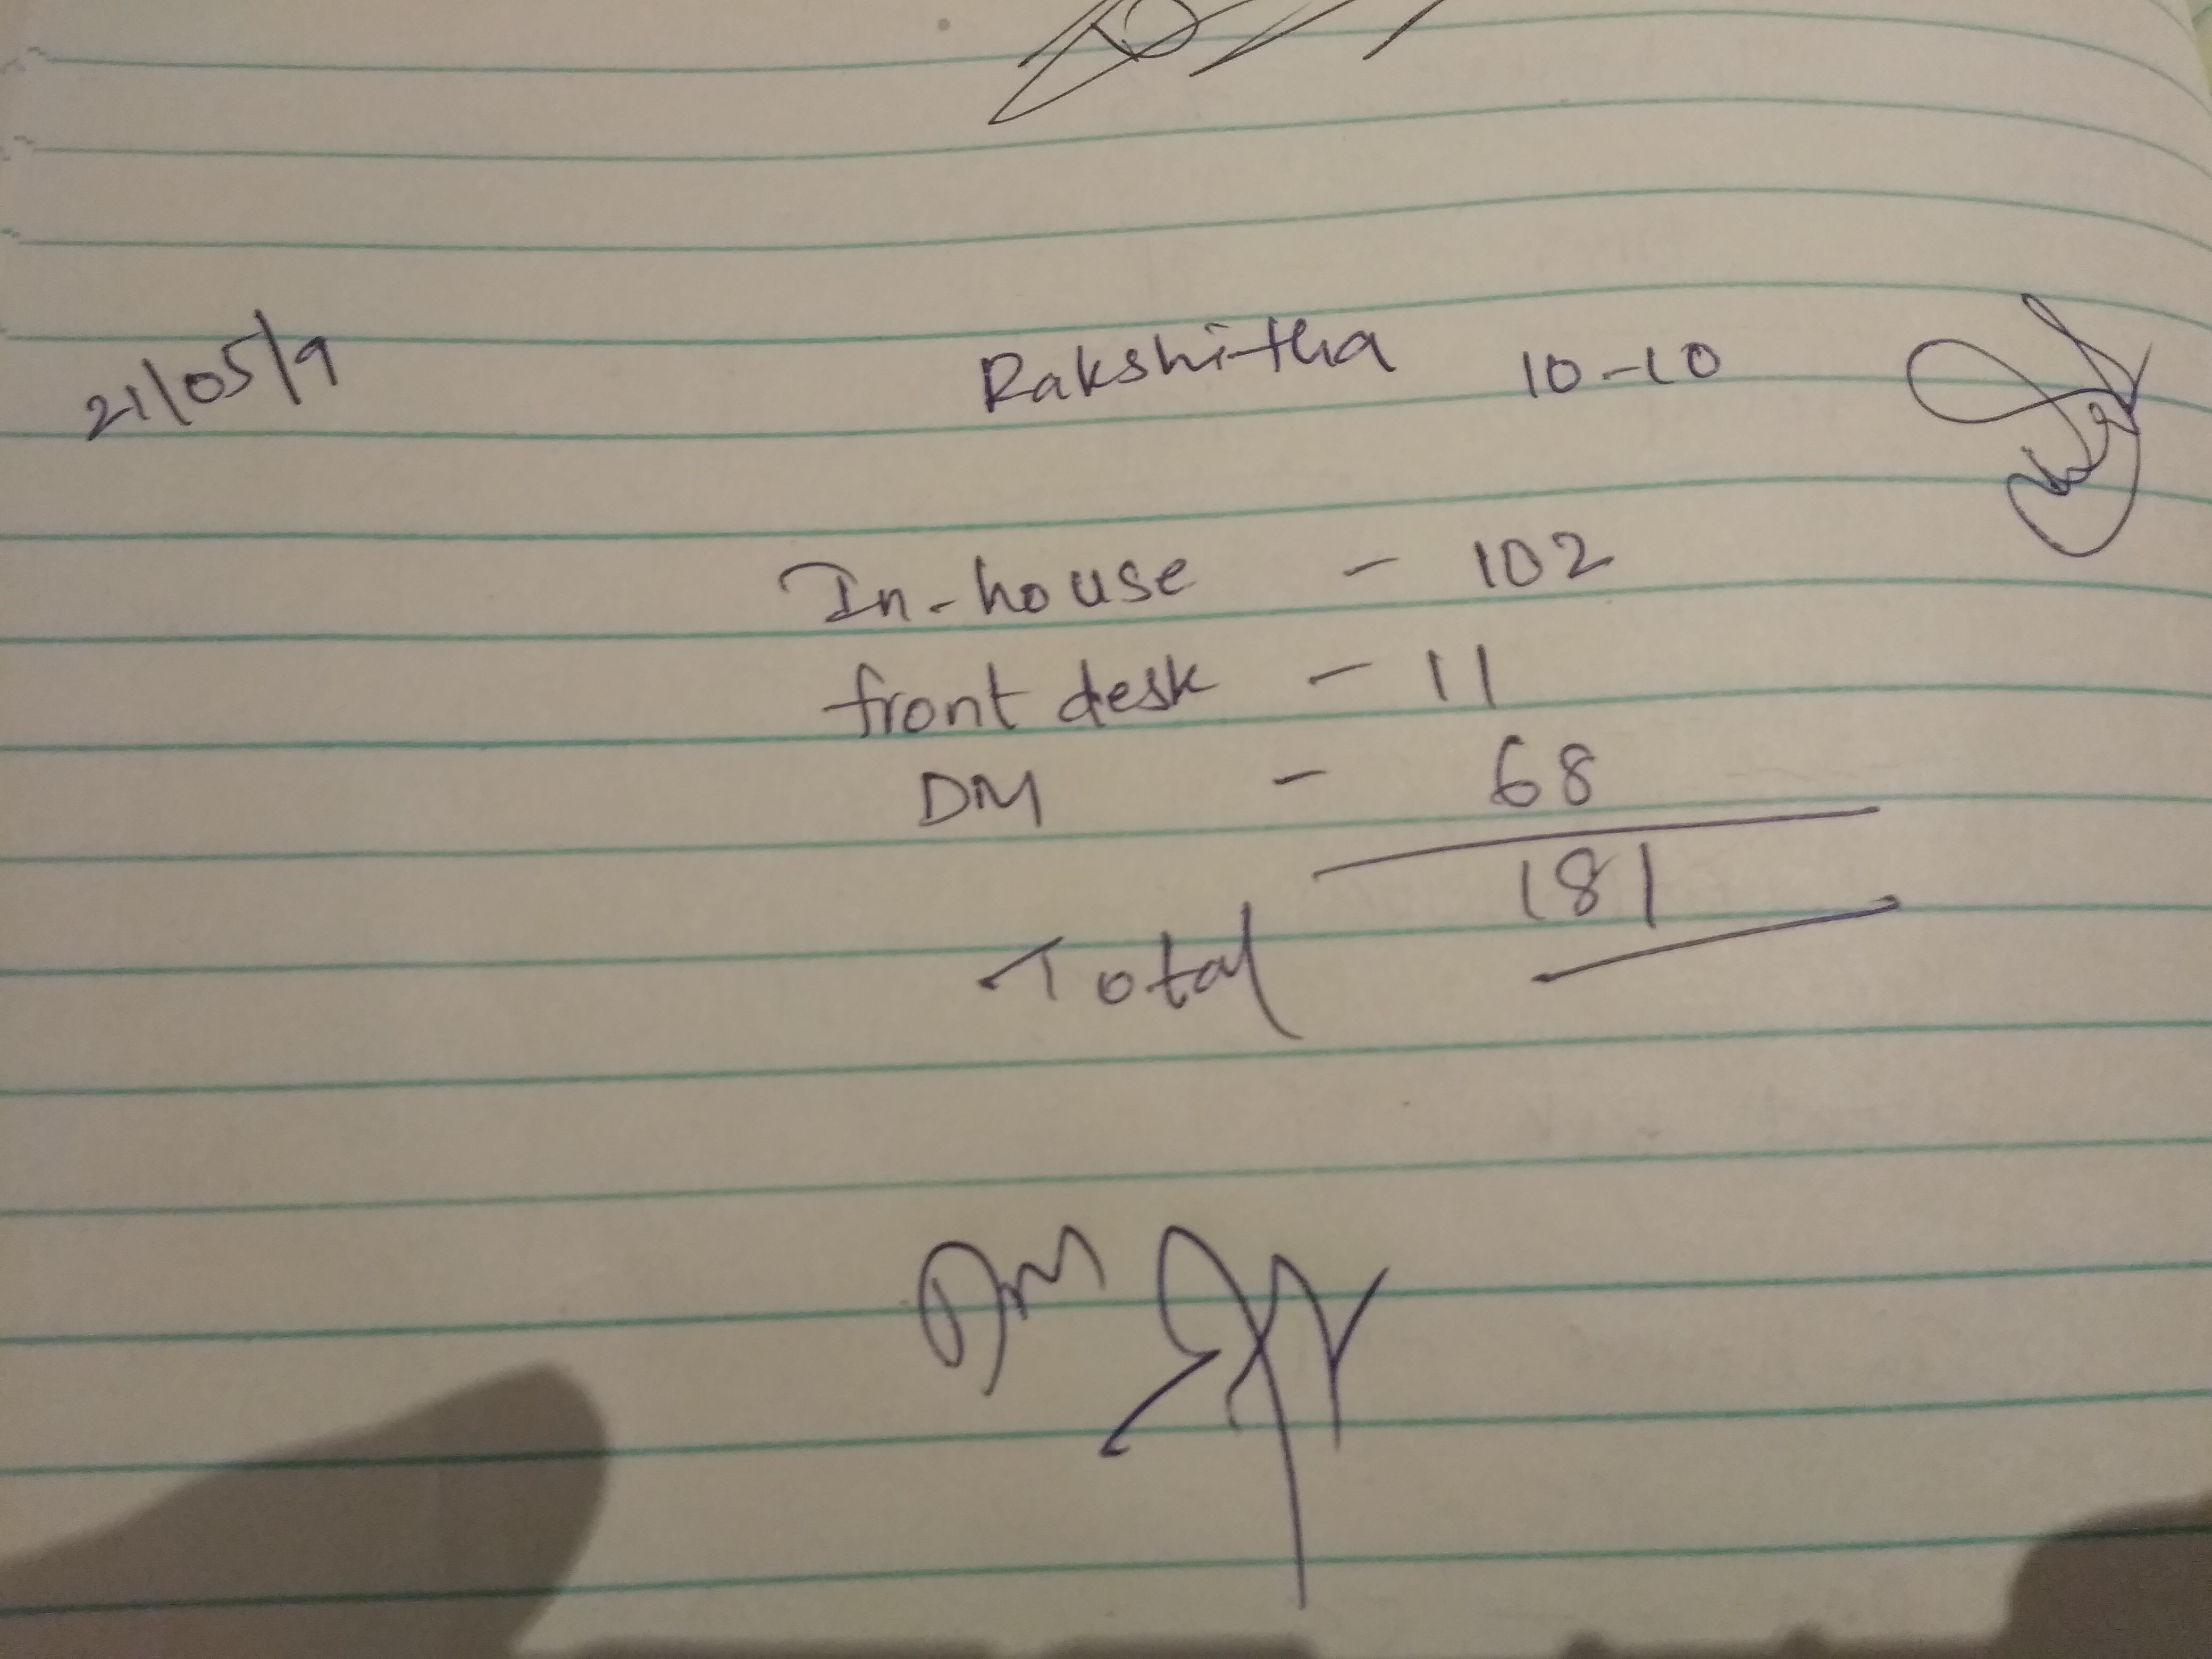 21/05/9 Rakshitha 10-10
In-house - 102
front desk - 11
DM - 68
181
Total
DM